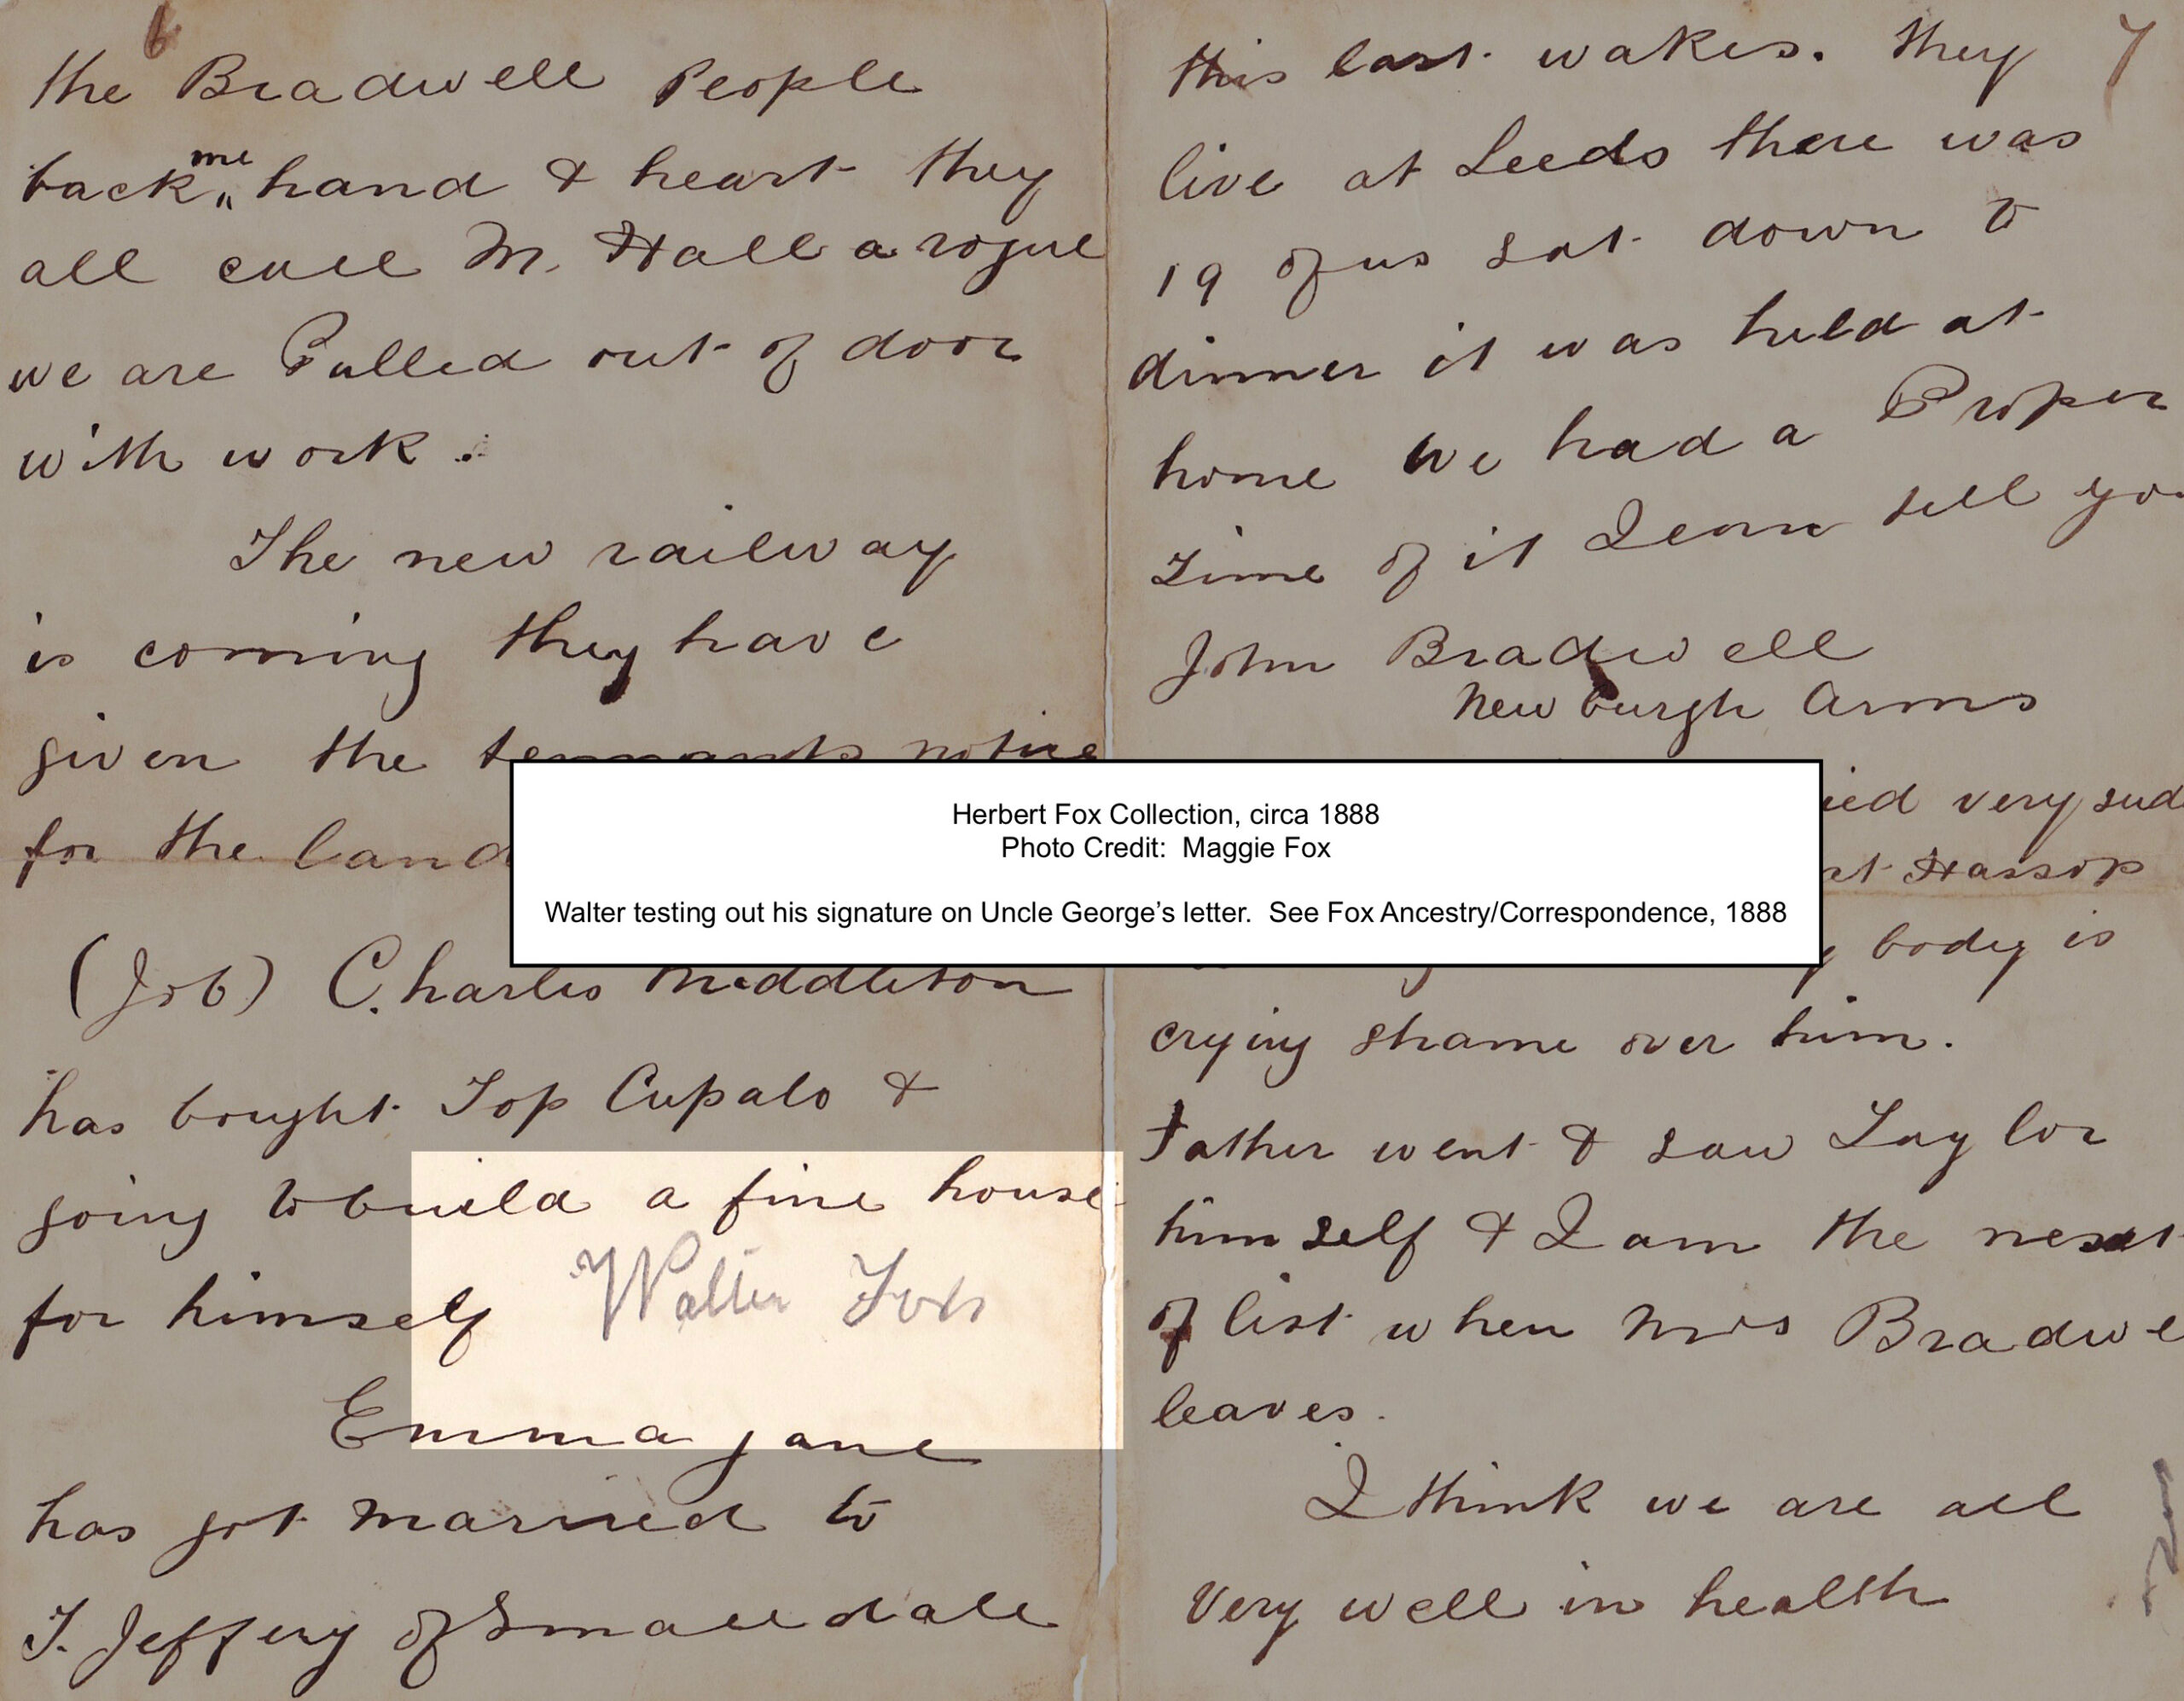 6
the Bradwell People
back me hand & heart they
all call M. Hall a rogue
we are Pulled out of door
with work.
The new railway
is coming they have
given the tennants notice
for the land
(Job) Charles Middleton
has bought Top Cupalo &
going to build a fine house
for himself
Walter Fox
Emma Jane
has got married to
T. Jeffery of Smalldale
7
this last wakes. they
live at Leeds there was
19 of us sat down to
dinner it was held at
home we had a Proper
time of it I can tell you
John Bradwell
Newburgh Arms
died very sud
at Hassop
body is
crying shame over him.
Father went & saw Taylor
himself & I am the next
of list when Mrs Bradwe
leaves.
I think we are all
very well in health
Herbert Fox Collection, circa 1888
Photo Credit: Maggie Fox
Walter testing out his signature on Uncle George’s letter. See Fox Ancestry/Correspondence, 1888